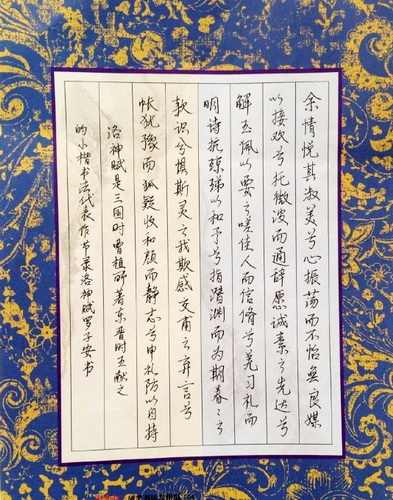 余情悦其淑美兮心振荡而不怡無良媒
以接欢兮托微波而通辞愿诚素之先达兮
解玉佩以要之嗟佳人而信脩兮羌习礼而
明诗抗琼珶以和予兮指潜渊而为期眷々之
款识兮惧斯灵之我欺感交甫之弃言兮
怅犹豫而狐疑收和颜而静志兮申礼防以自持
洛神赋是三国时曹植所著东晋时王献之
的小楷书法代表作节录洛神赋罗子安书